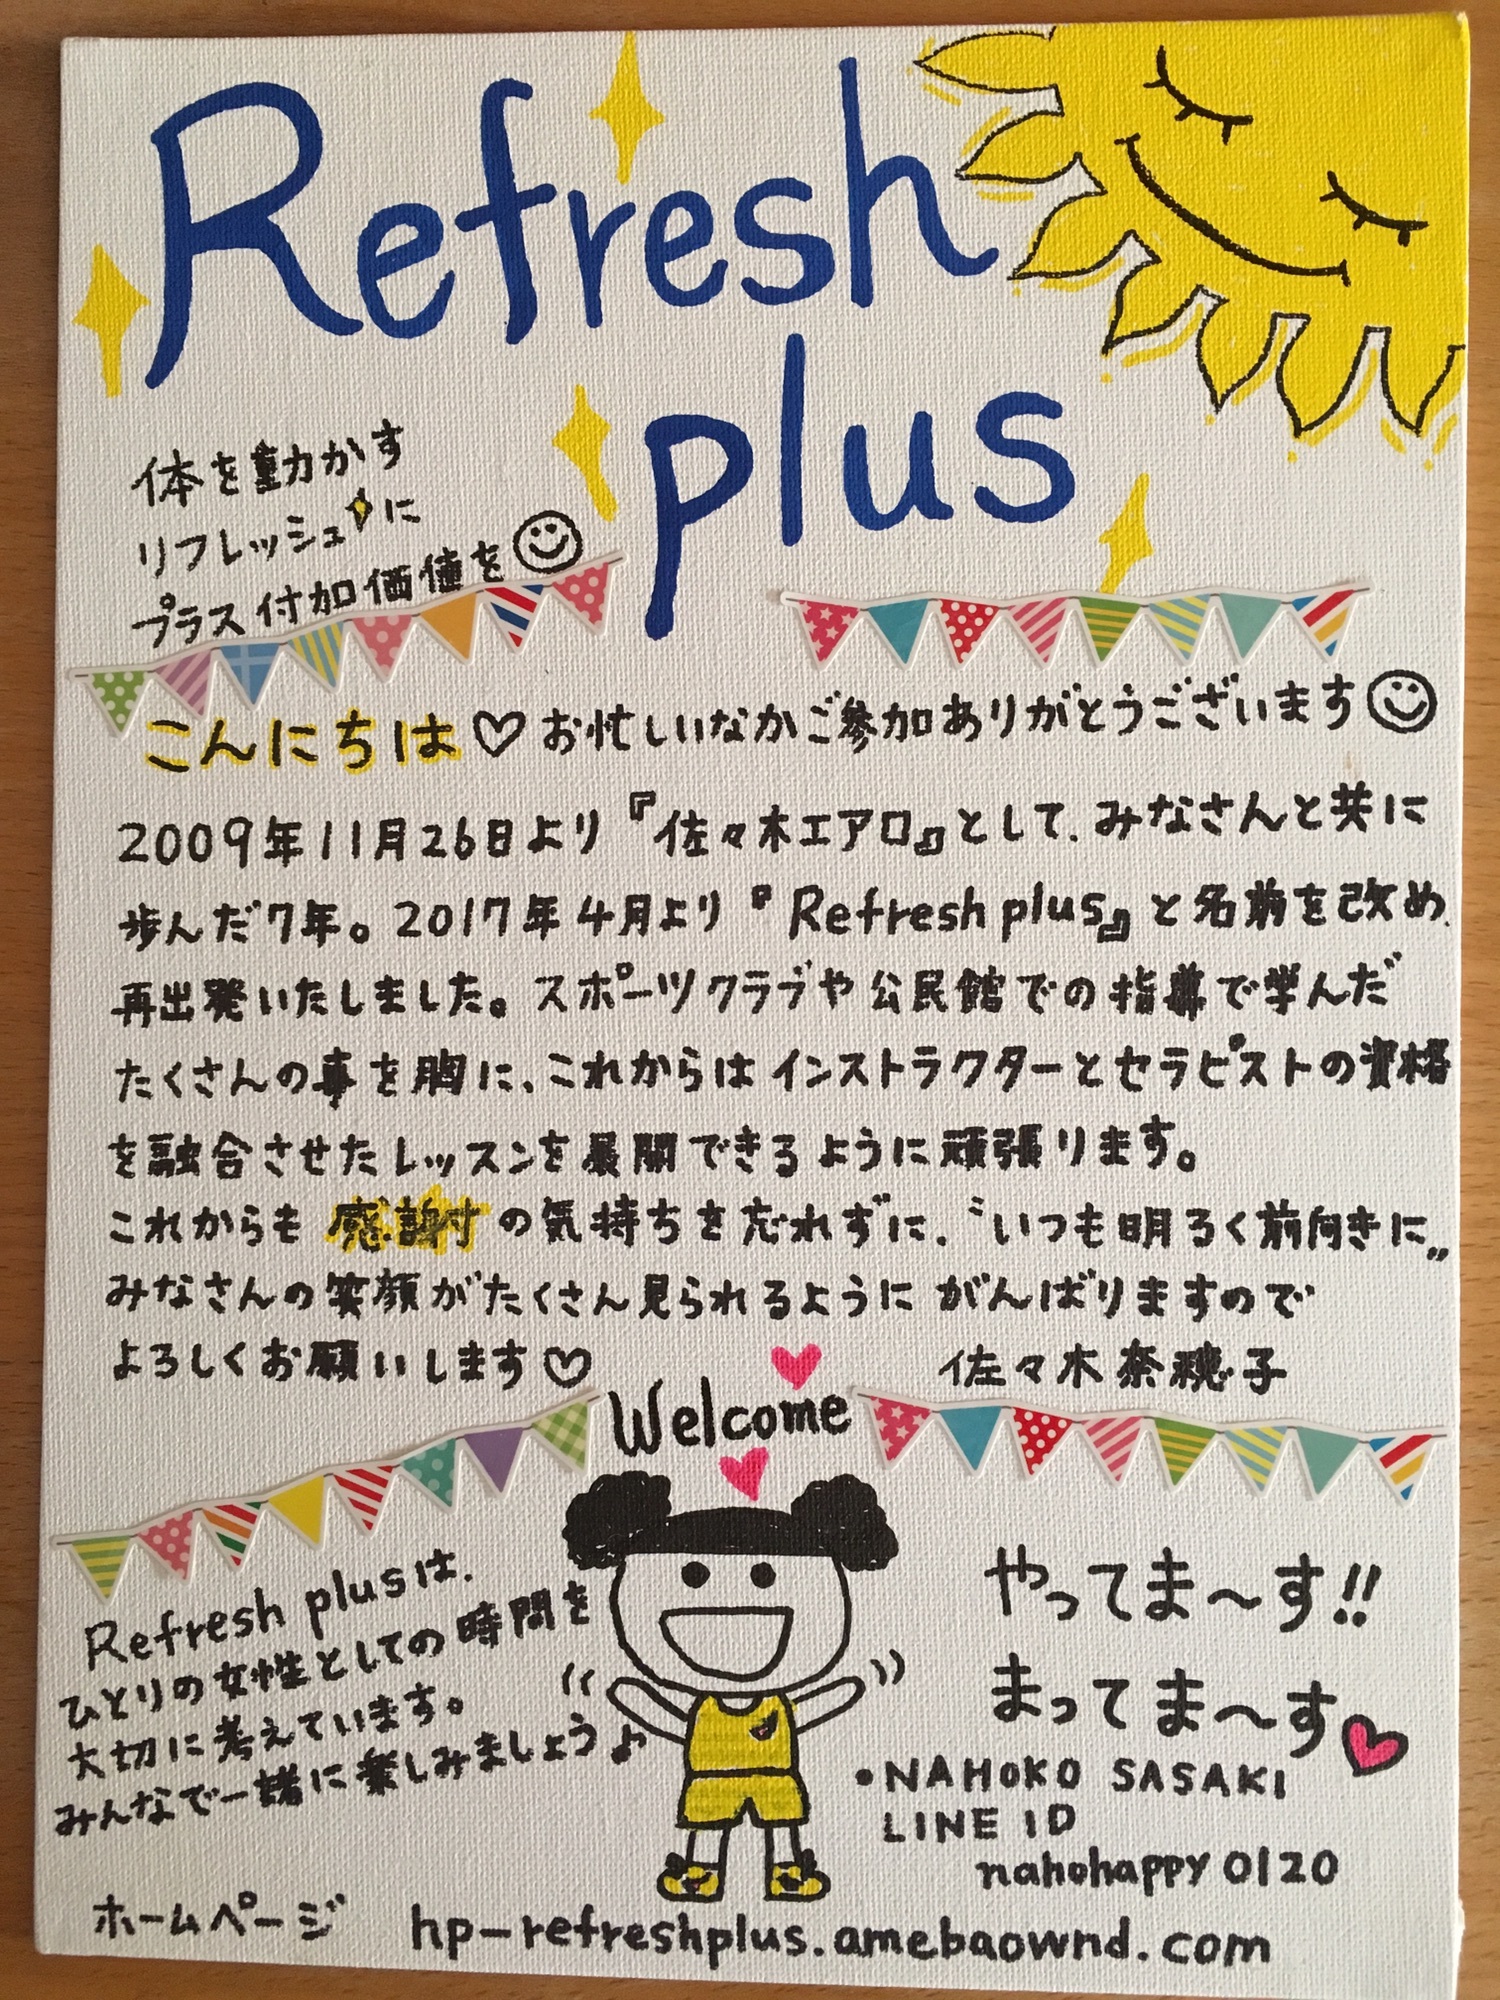 Refresh
plus
体を動かす
リフレッシュに
プラス付加価値を
こんにちは♡お忙しいなかご参加ありがとうございます
2009年11月26日より『佐々木エアロ』として、みなさんと共に
歩んだ7年。2017年4月より『Refresh plus』と名前を改め、
再出発いたしました。スポーツクラブや公民館での指導で学んだ
たくさんの事を胸に、これからはインストラクターとセラピストの資格
を融合させたレッスンを展開できるように頑張ります。
これからも感謝の気持ちを忘れずに、〝いつも明るく前向きに〟
みなさんの笑顔がたくさん見られるようにがんばりますので
よろしくお願いします♡
佐々木奈穂子
Welcome
Refresh plusは、
ひとりの女性としての時間を
大切に考えています。
みんなで一緒に楽しみましょう♪
やってま〜す!!
まってま〜す
•NAHOKO SASAKI
LINE ID
nahohappy0120
ホームページ hp-refreshplus.amebaownd.com